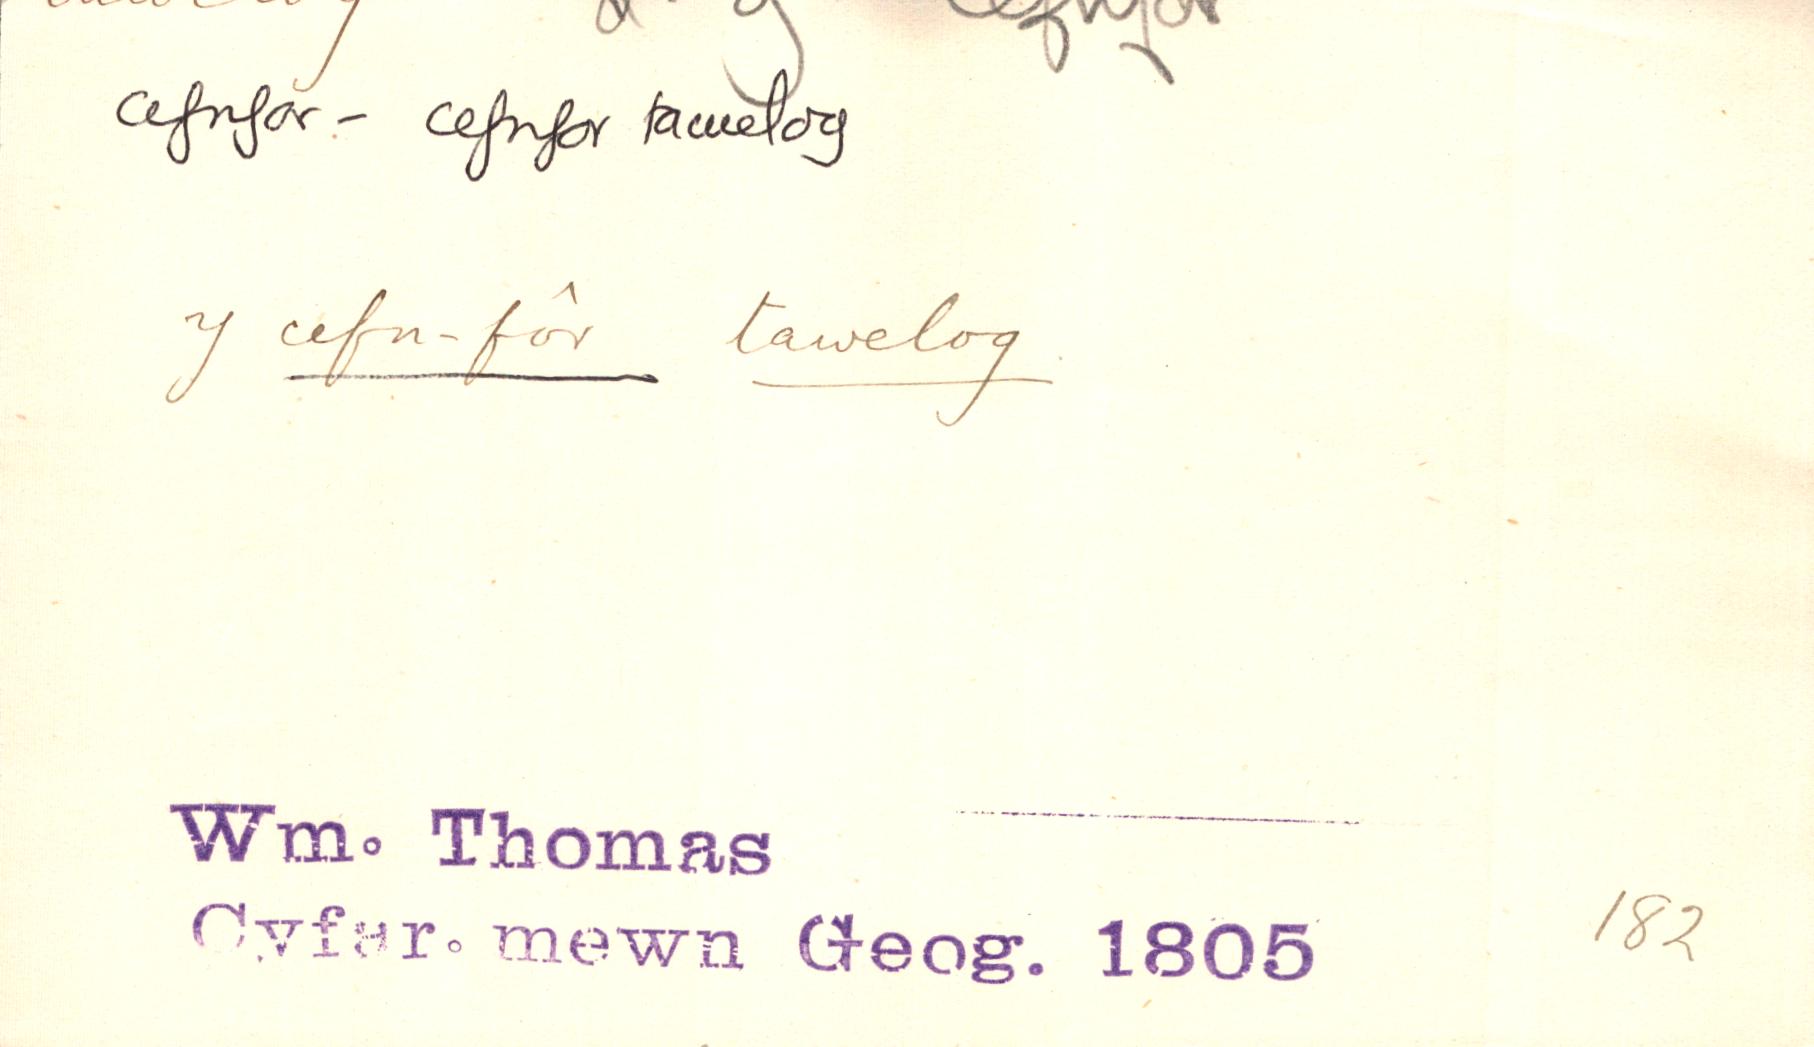 tawelog cefnfor
cefnfor - cefnfor tawelog
y cefn-fôr tawelog
Wm. Thomas
Cyfar. mewn Geog. 1805
182